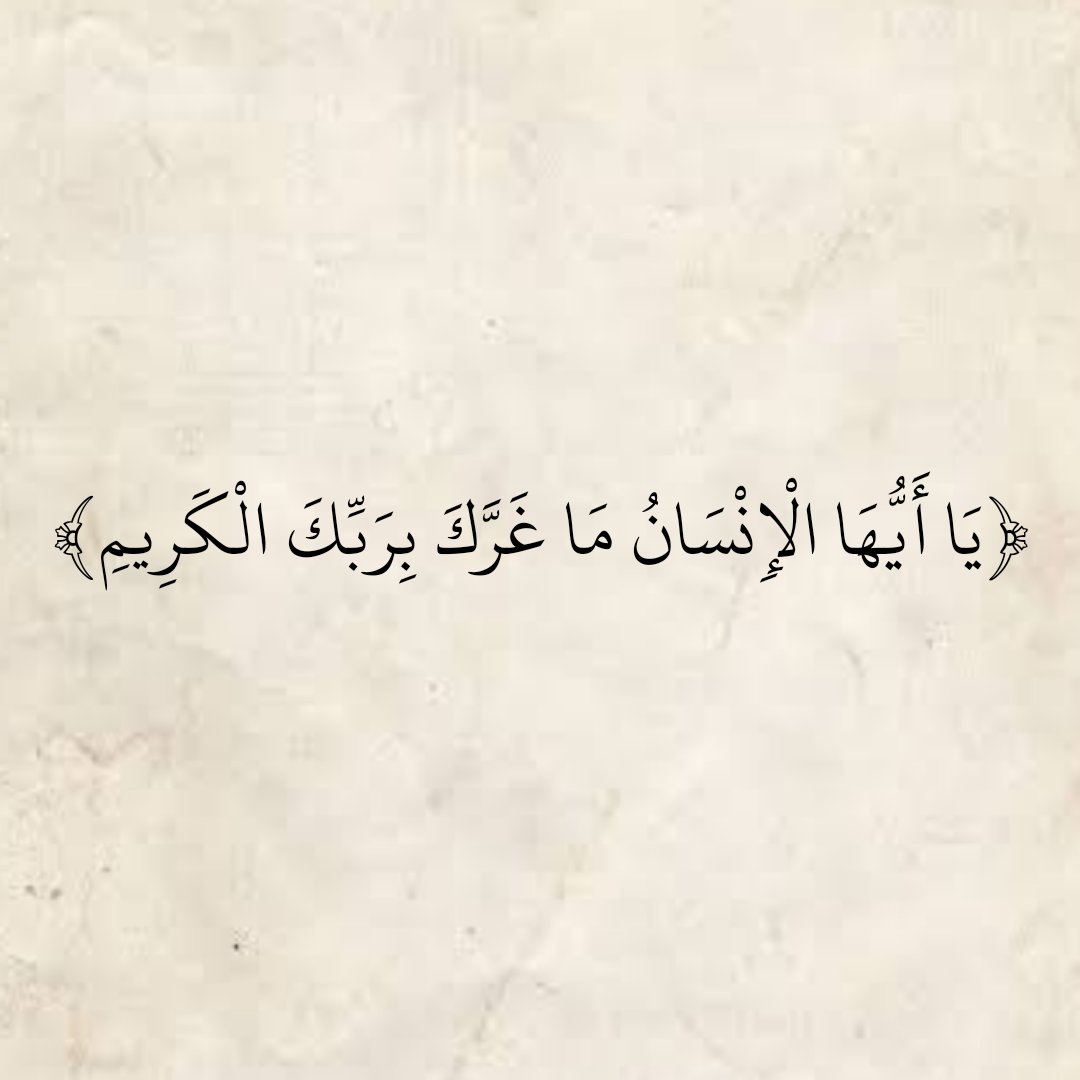 ﴿يَا أَيُّهَا الْإِنْسَانُ مَا غَرَّكَ بِرَبِّكَ الْكَرِيمِ﴾